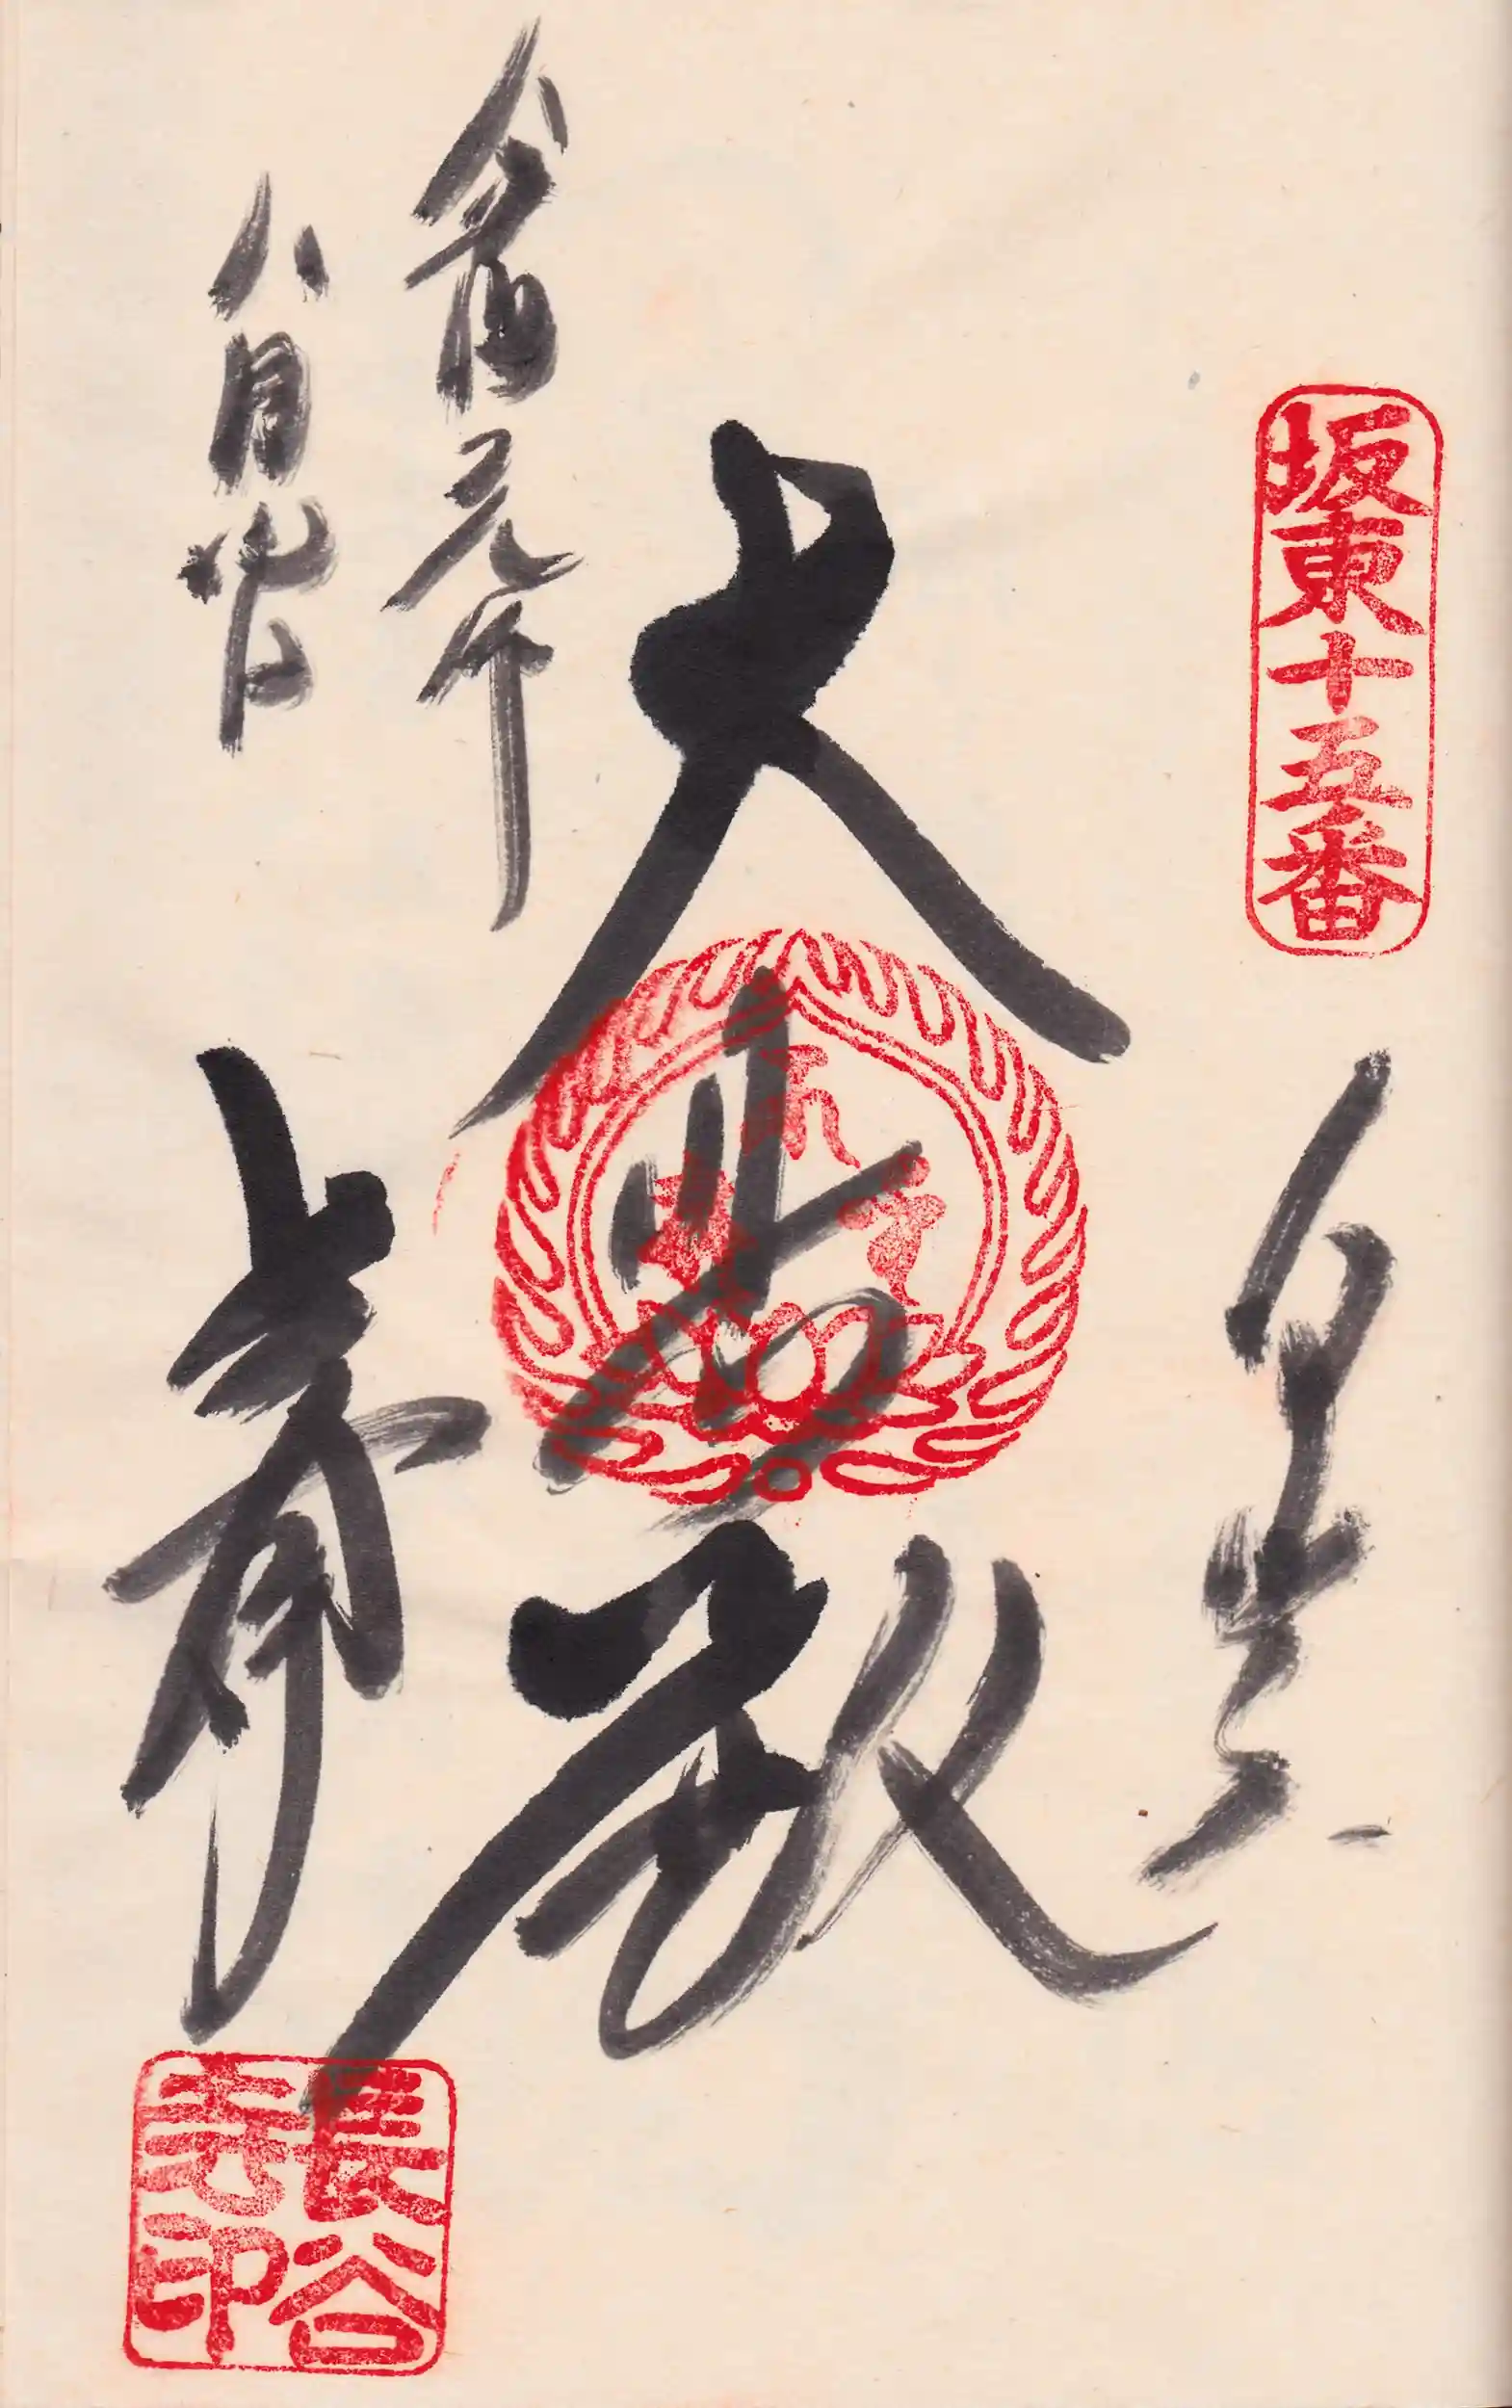 坂東十五番
白岩
大悲殿
長谷
寺印
令和元年
八月廿日